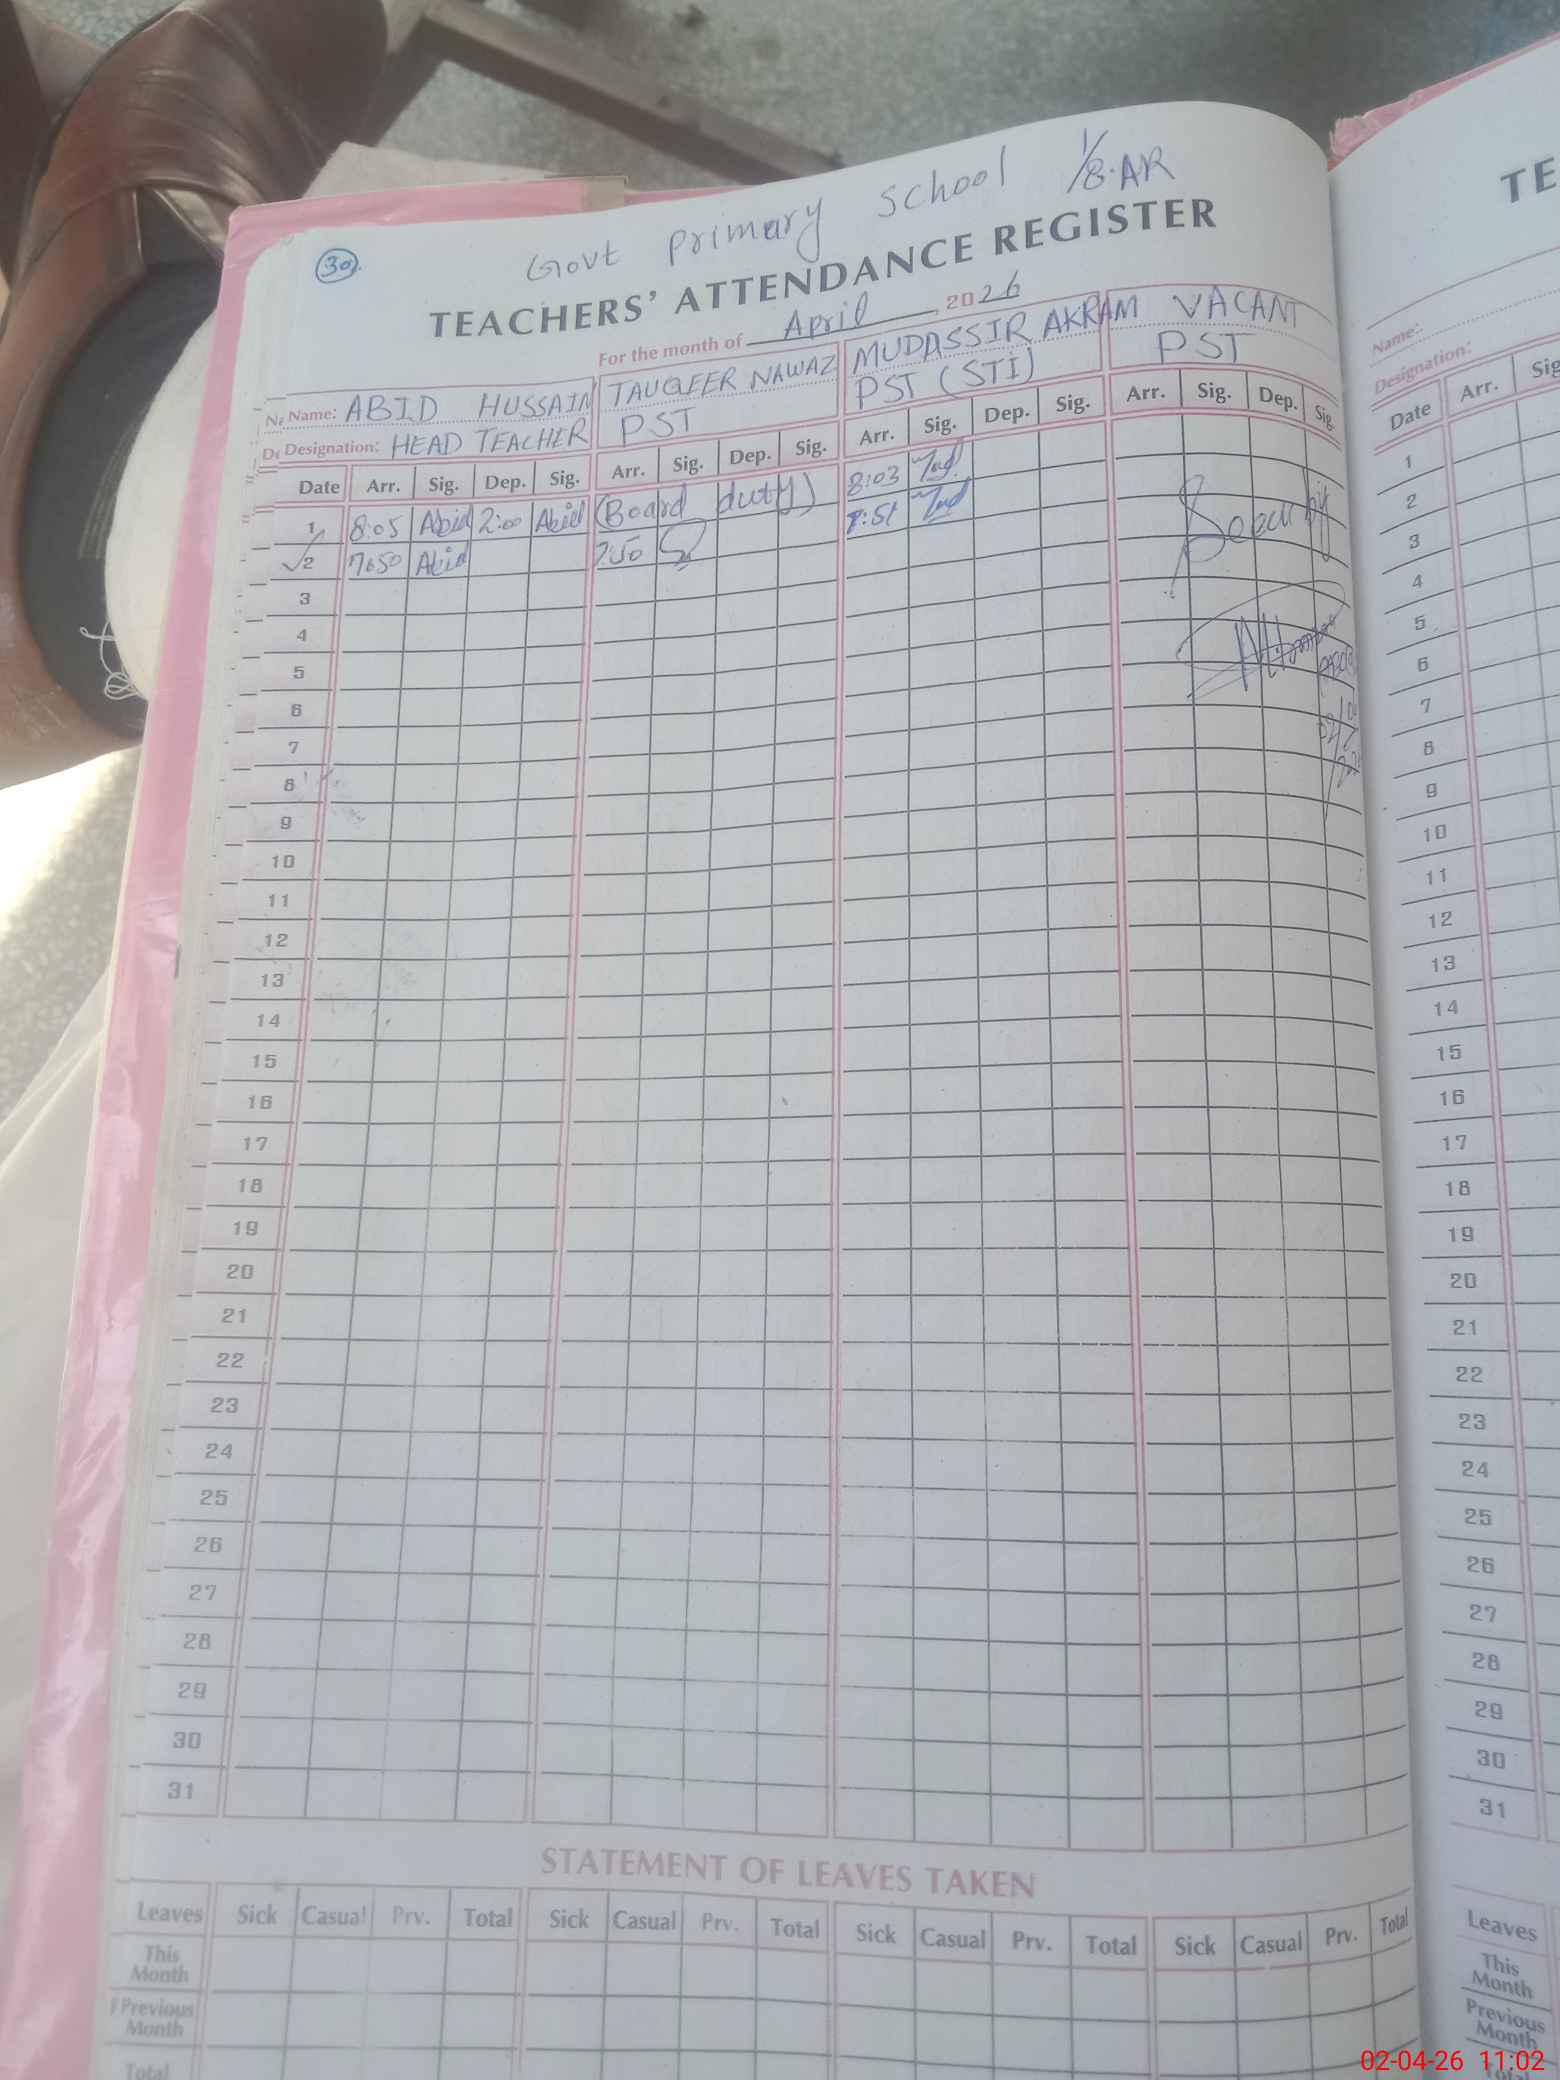 Govt primary school 1/8.AR
30
TEACHERS' ATTENDANCE REGISTER
For the month of April, 2026
Name: ABID HUSSAIN TAUQEER NAWAZ MUDASSIR AKRAM VACANT
Designation: HEAD TEACHER PST PST (STI) PST
Date Arr. Sig. Dep. Sig. Arr. Sig. Dep. Sig. Arr. Sig. Dep. Sig. Arr. Sig. Dep. Sig.
1 8:05 Abid 2:00 Abid (Board duty) 8:03
2 7:50 Abid 7:50 7:51
3
4
5
6
7
8
9
10
11
12
13
14
15
16
17
18
19
20
21
22
23
24
25
26
27
28
29
30
31
STATEMENT OF LEAVES TAKEN
Leaves Sick Casual Prv. Total Sick Casual Prv. Total Sick Casual Prv. Total Sick Casual Prv. Total
This Month
Previous Month
Total
TE
Name:
Designation:
Date Arr. Sig
1
2
3
4
5
6
7
8
9
10
11
12
13
14
15
16
17
18
19
20
21
22
23
24
25
26
27
28
29
30
31
Leaves
This Month
Previous Month
Total
02-04-26 11:02